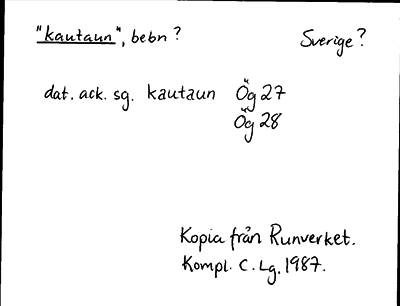 "kautaun", bebn? Sverige?
dat. ack. sg. kautaun Ög 27
Ög 28
Kopia från Runverket.
Kompl. C. Lg. 1987.